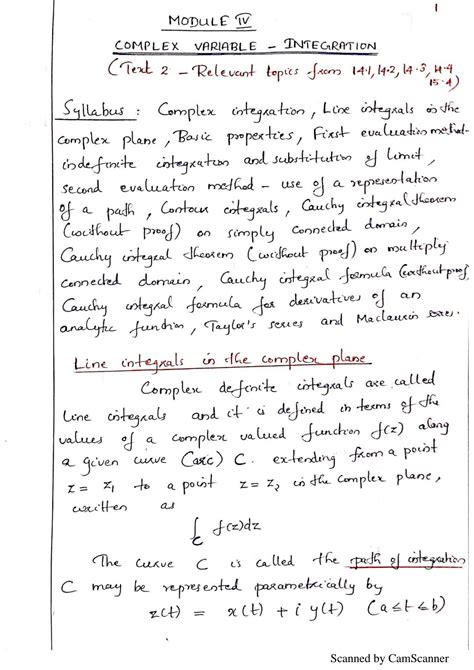 1
MODULE IV
COMPLEX VARIABLE - INTEGRATION
(Text 2 - Relevant topics from 14.1, 14.2, 14.3, 14.4
15.4)
Syllabus : Complex integration, Line integrals in the
complex plane, Basic properties, First evaluation method-
indefinite integration and substitution of limit,
second evaluation method - use of a representation
of a path, Contour integrals, Cauchy integral theorem
(without proof) on simply connected domain,
Cauchy integral theorem (without proof) on multiply
connected domain, Cauchy integral formula (without proof)
Cauchy integral formula for derivatives of an
analytic function, Taylor's series and Maclaurin series.
Line integrals in the complex plane
Complex definite integrals are called
Line integrals and it is defined in terms of the
values of a complex valued function f(z) along
a given curve (arc) C. extending from a point
z = z₁ to a point z = z₂ in the complex plane,
written as
∫_C f(z)dz
The curve C is called the path of integration
C may be represented parametrically by
z(t) = x(t) + i y(t) (a≤t≤b)
Scanned by CamScanner